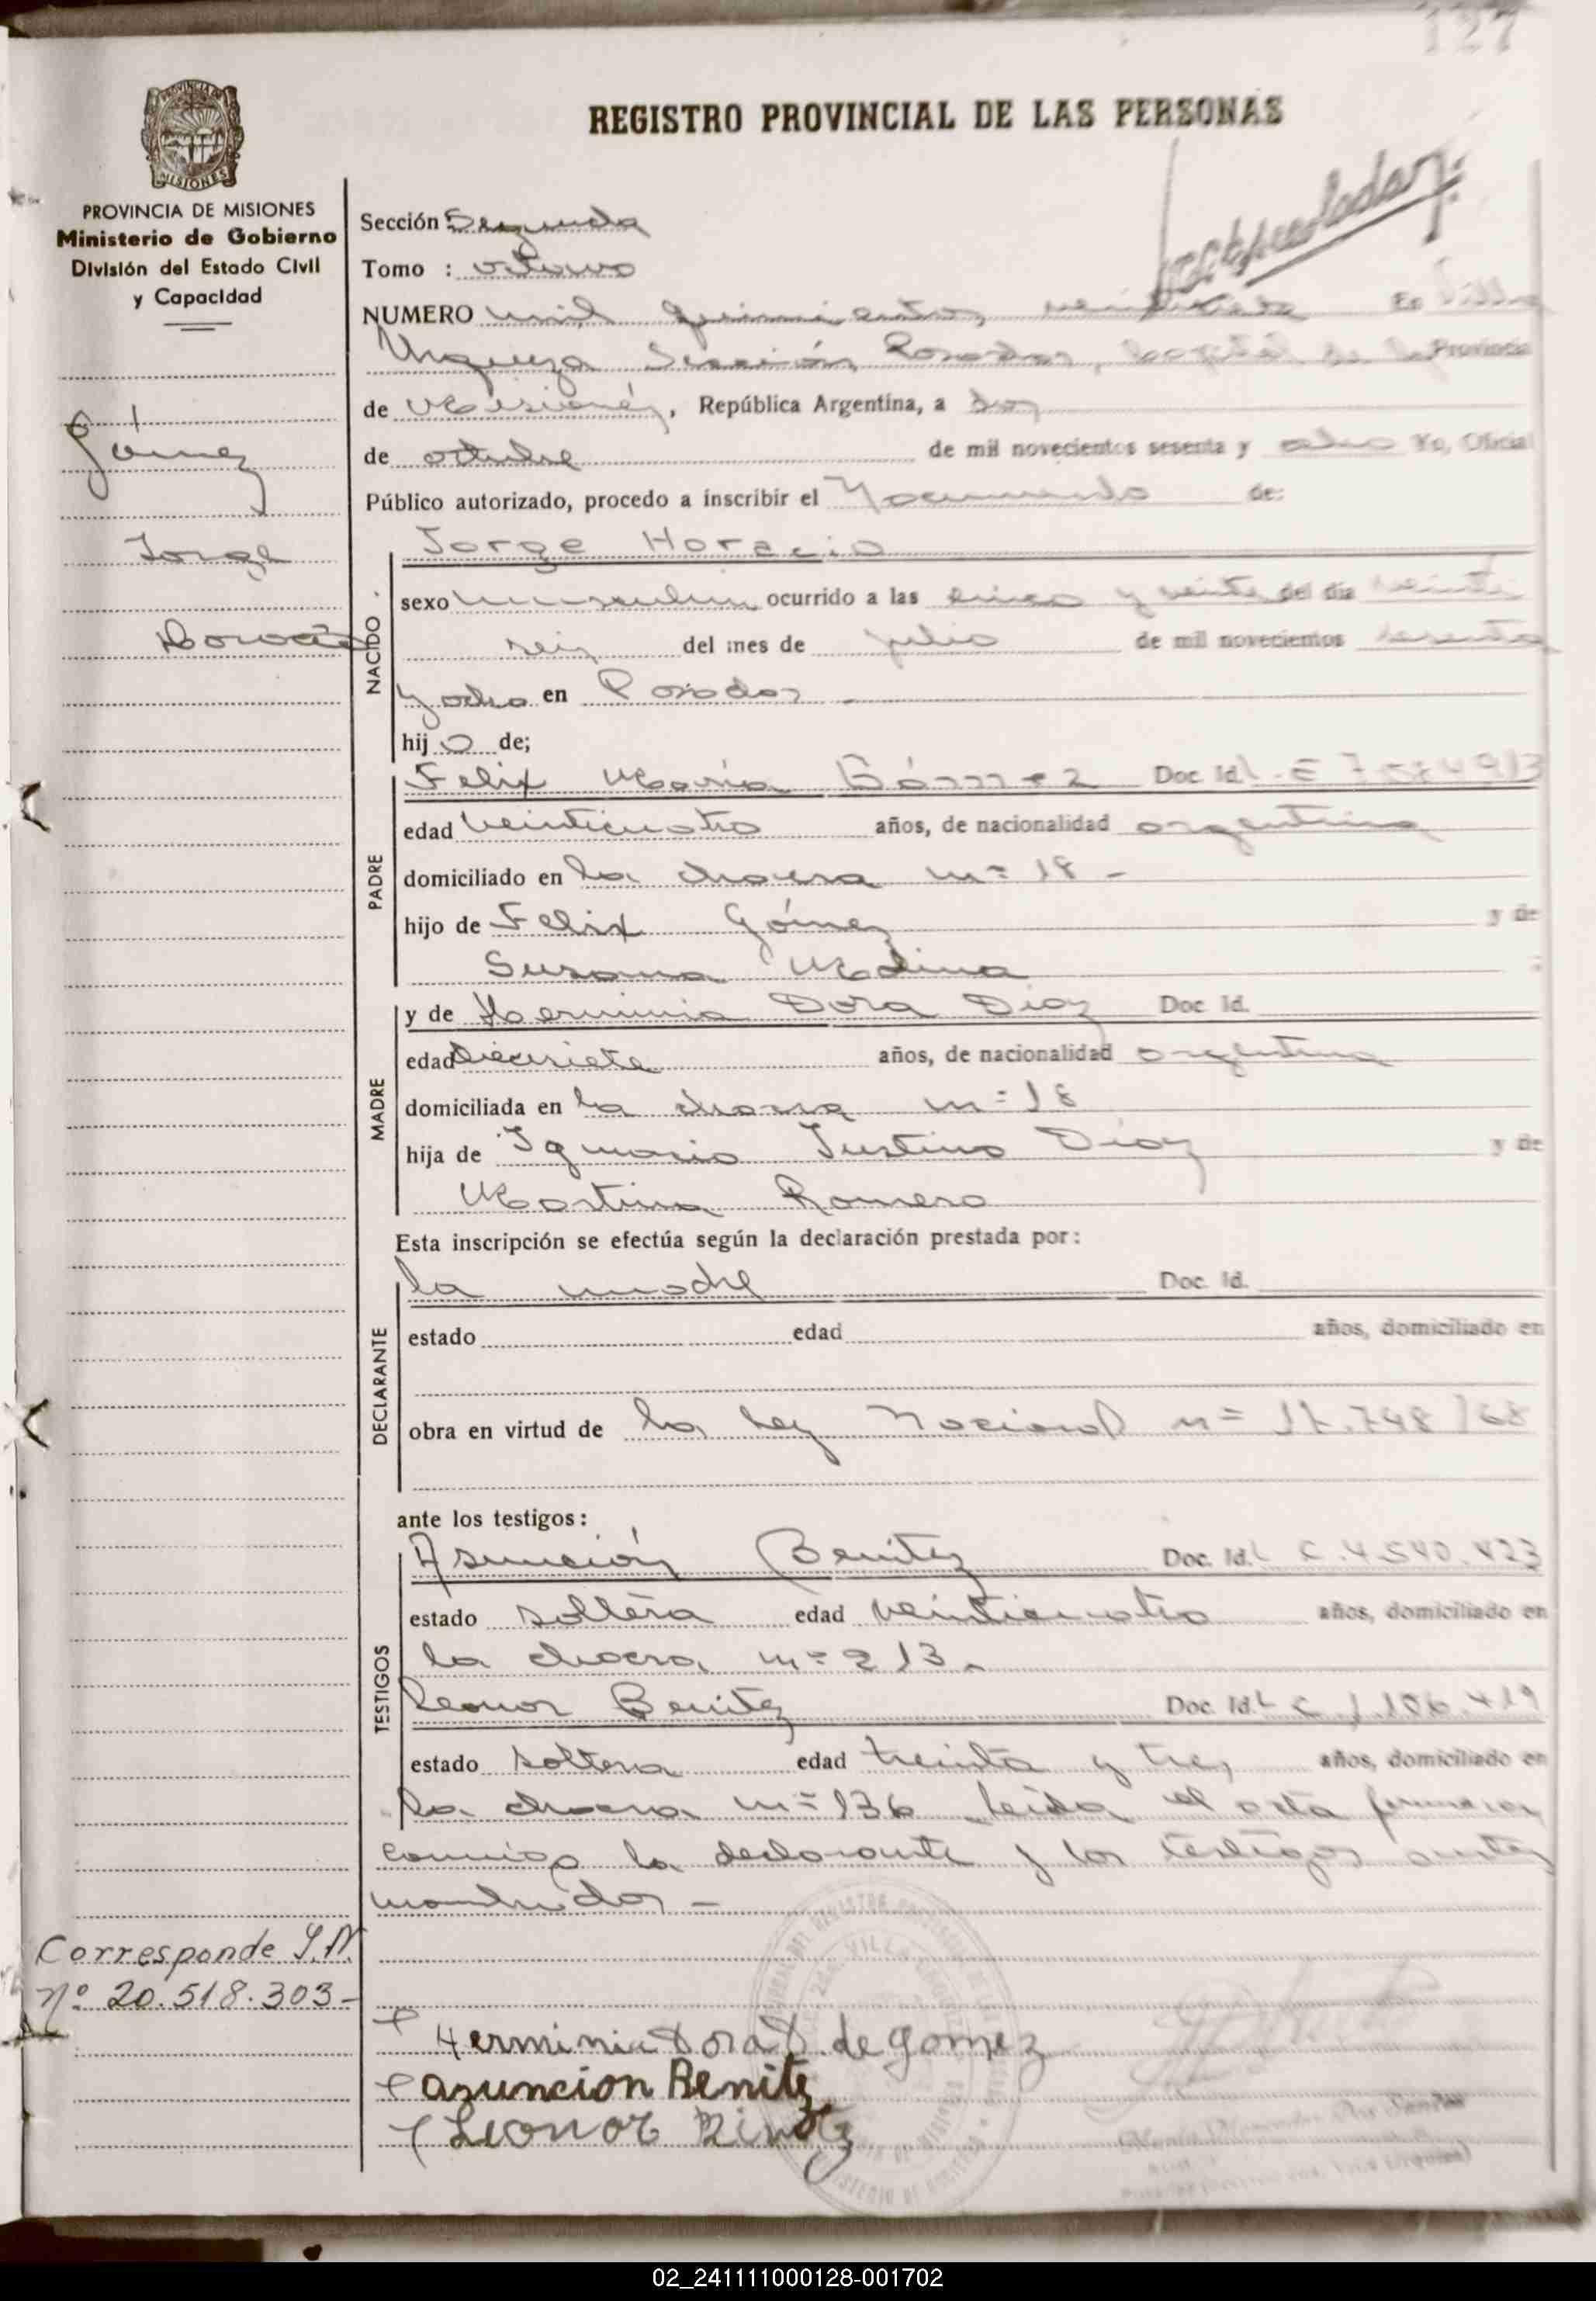 127
REGISTRO PROVINCIAL DE LAS PERSONAS
PROVINCIA DE MISIONES
Ministerio de Gobierno
División del Estado Civil
y Capacidad
Sección Segunda
Tomo : octavo
NUMERO mil quinientos En Villa
Urquiza Sección Posadas, capital de la Provincia
de Misiones, República Argentina, a dos
de octubre de mil novecientos sesenta y ocho Yo, Oficial
Público autorizado, procedo a inscribir el Nacimiento de:
Gómez
Jorge
Horacio
NACIDO
Jorge Horacio
sexo masculino ocurrido a las cinco y veinte del día veinti
seis del mes de julio de mil novecientos sesenta
y ocho en Posadas
hijo de;
PADRE
Felix María Gómez Doc Id.
edad veinticuatro años, de nacionalidad argentina
domiciliado en la chacra nº 18 -
hijo de Felix Gómez y de
Susana Medina
MADRE
y de Herminia Dora Díaz Doc Id.
edad diecisiete años, de nacionalidad argentina
domiciliada en la chacra nº 18
hija de Ignacio Justino Díaz y de
Martina Romero
Esta inscripción se efectúa según la declaración prestada por:
DECLARANTE
la madre Doc. Id.
estado edad años, domiciliado en
obra en virtud de la ley Nacional nº 17.748/68
ante los testigos:
TESTIGOS
Asunción Benitez Doc. Id. L C. 4.540.423
estado soltera edad veinticuatro años, domiciliado en
la chacra nº 213.
Leonor Benitez Doc. Id. L C
estado soltera edad treinta y tres años, domiciliado en
la chacra nº 136 leida el acta firman con
conmigo la declarante y los testigos antes
Corresponde
Nº 20.518.303-
Herminia Dora D. de gomez
asuncion Benitez
Leonor
02_241111000128-001702